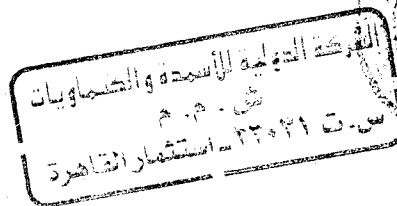 الشركة الدولية للأسمدة والكيماويات
ش . م . م
س . ت ٢٢٠٣١ - استثمار القاهرة